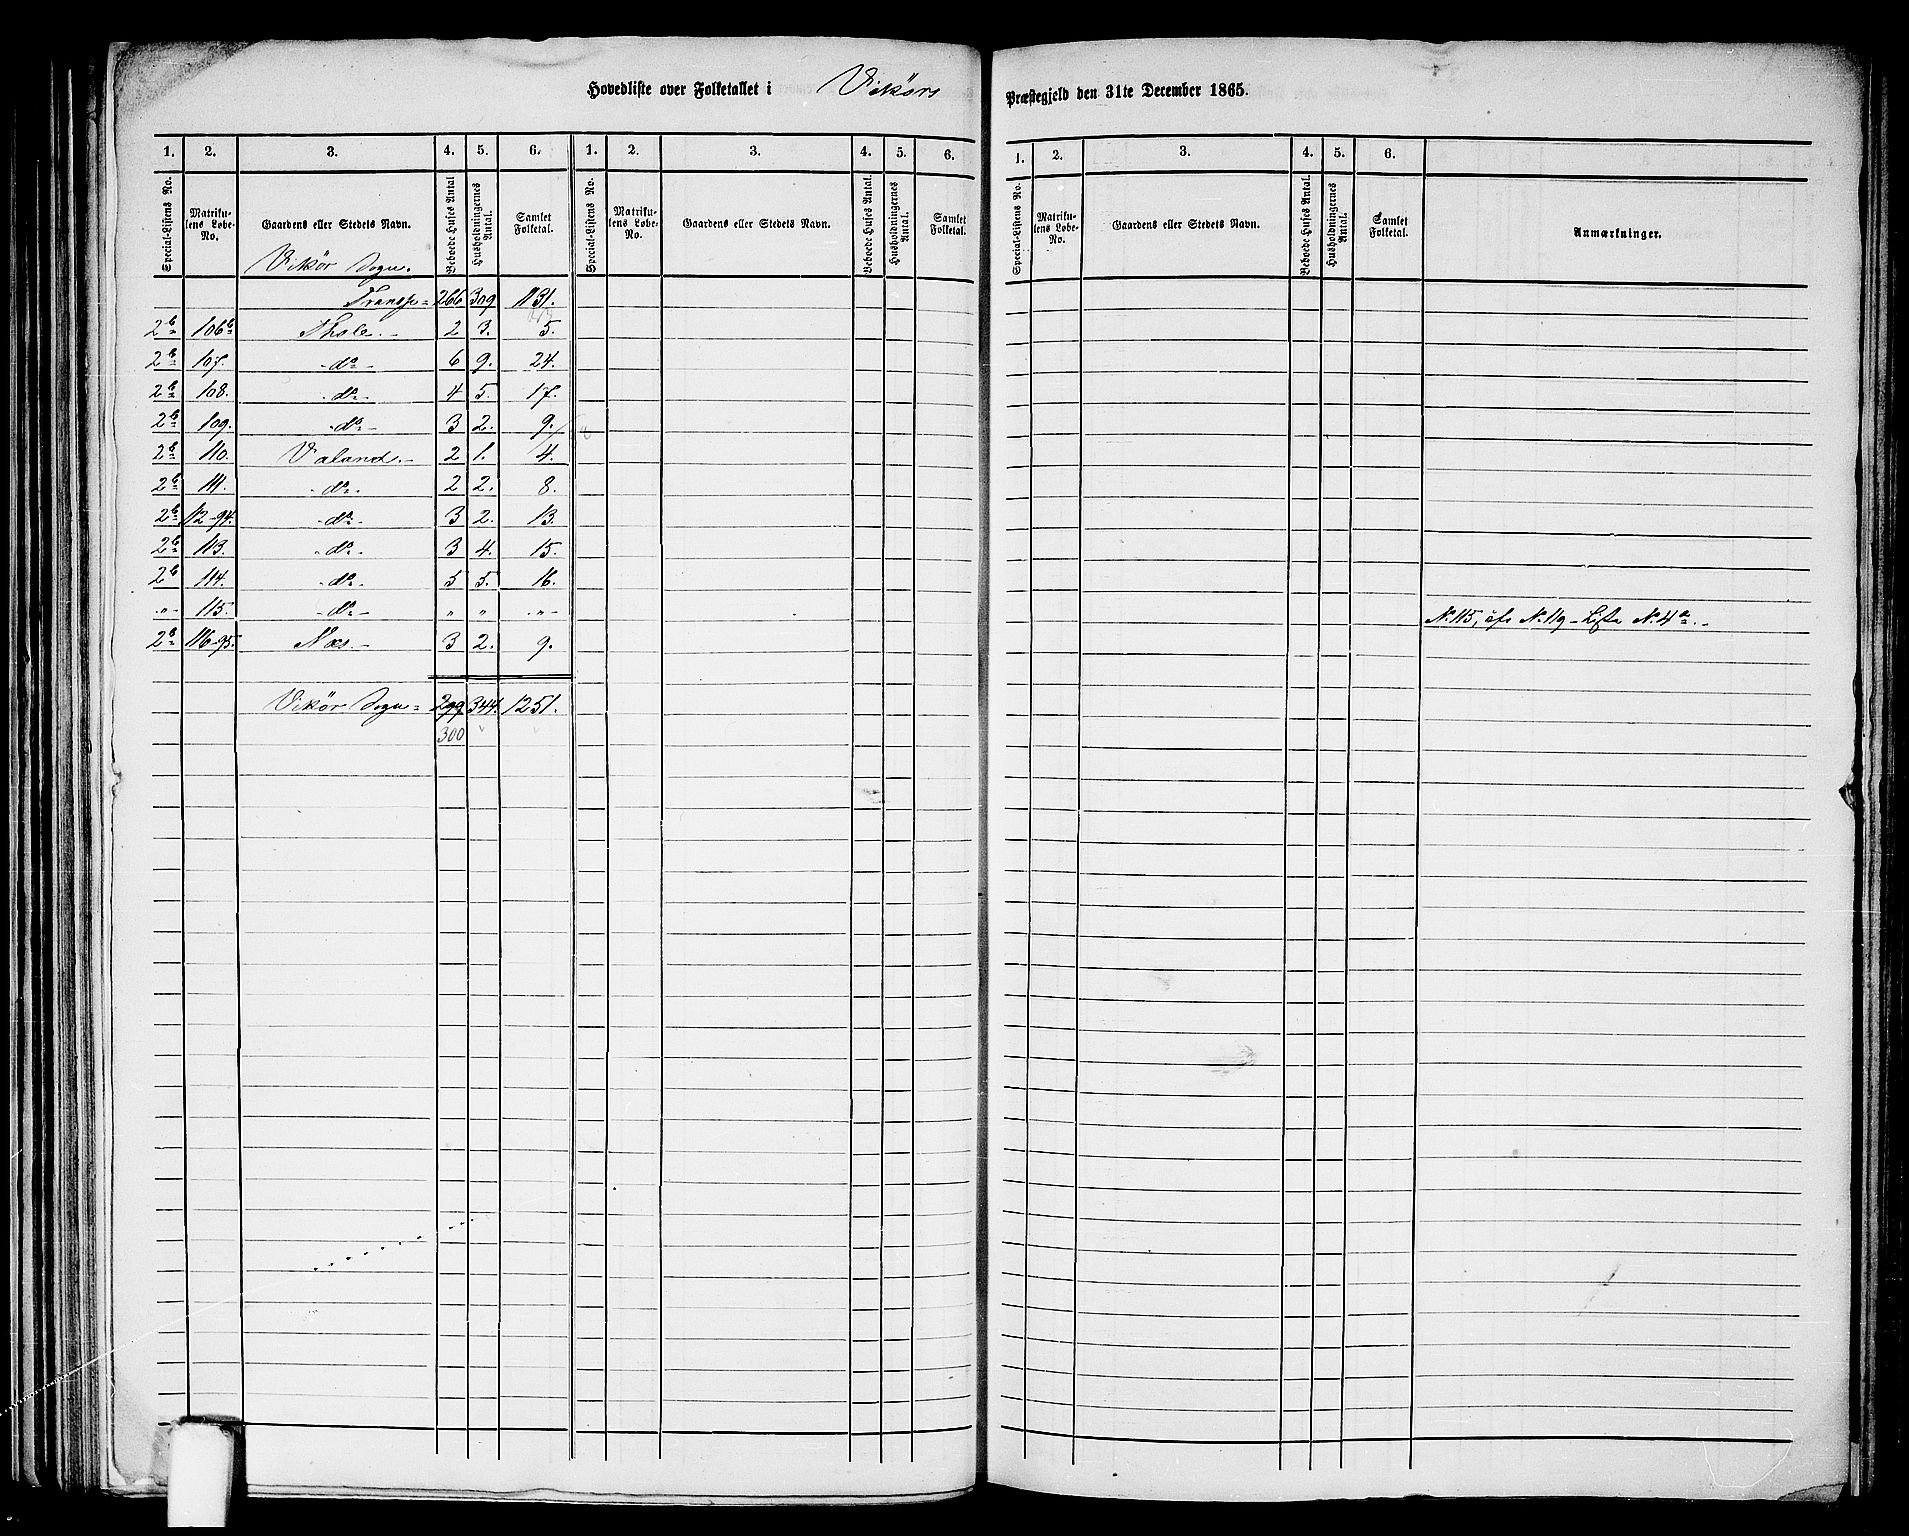 Hovedliste over Folketallet i Vikørs Præstegjeld den 31te December 1865.
1. 2. 3. 4. 5. 6. 1. 2. 3. 4. 5. 6. 1. 2. 3. 4. 5. 6.
Special-Listens No. Matrikulens Løbe-No. Gaardens eller Stedets Navn. Beboede Huses Antal Husholdningernes Antal. Samlet Folketal. Special-Listens No. Matrikulens Løbe-No. Gaardens eller Stedets Navn. Beboede Huses Antal. Husholdningernes Antal. Samlet Folketal. Special-Listens No. Matrikulens Løbe-No. Gaardens eller Stedets Navn. Beboede Huses Antal. Husholdningernes Antal. Samlet Folketal. Anmærkninger.
Vikør Sogn.
Transp = 266 309 1131.
2b 106b Thole.- 2 3. 5.
2b 107. -do- 6 9. 24.
2b 108. -do- 4 5. 17.
2b 109. -do- 3 2. 9.
2b 110. Valand.- 2 1. 4.
2b 111. -do- 2 2. 8.
2b 112-94. -do- 3 2. 13.
2b 113. -do- 3 4. 15.
2b 114. -do- 5 5. 16.
-"- 115. -do- " " -"- No 115, cfr No 119 - Liste No 4a.-
2b 116-95. Næs.- 3 2. 9.
Vikør Sogn = 299 344. 1251.
300